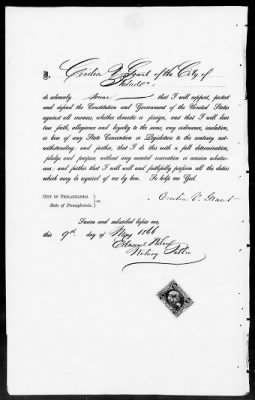 I, Cecilia V. Grant of the City of
Philada
do solemnly swear that I will support, protect
and defend the Constitution and Government of the United States
against all enemies, whether domestic or foreign, and that I will bear
true faith, allegiance and loyalty to the same, any ordinance, resolution,
or law of any State Convention or Legislature to the contrary not-
withstanding; and further, that I do this with a full determination,
pledge and purpose without any mental reservation or evasion whatso-
ever; and further that I will well and faithfully perform all the duties
which may be required of me by law. So help me God.
CITY OF PHILADELPHIA
State of Pennsylvania. ss.
Cecilia V. Grant
Sworn and subscribed before me,
this 9th day of May 1866
Notary Public